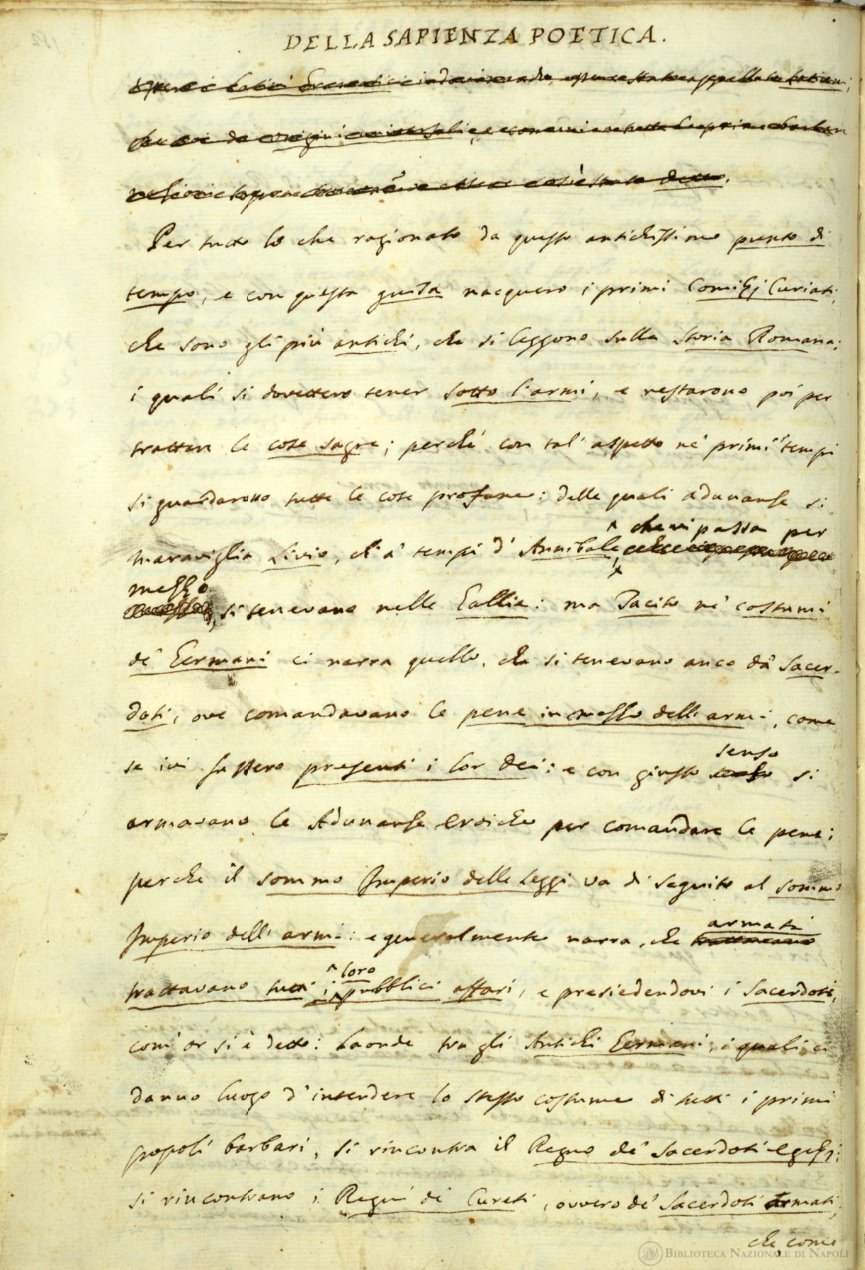 DELLA SAPIENZA POETICA.
Per tutto lo che ragionato da questo antichissimo punto di
tempo, e con questa guisa nacquero i primi Comizj Curiati,
che sono gli più antichi, che si leggono sulla Storia Romana;
i quali si dovettero tener sotto l'armi, e restarono poi per
trattare le cose sagre; perchè con tal' aspetto ne' primi tempi
si guardarono tutte le cose profane: delle quali adunanze si
maraviglia Livio, ch' a' tempi d' Annibale, che vi passa per
mezzo, si tenevano nelle Gallie: ma Tacito ne' costumi
de' Germani ci narra quello, che si tenevano anco da' Sacer-
doti, ove comandavano le pene in mezzo dell' armi, come
se ivi fussero presenti i lor dei: e con giusto senso si
armavano le Adunanze eroiche per comandare le pene;
perchè il sommo Imperio delle Leggi va di seguito al sommo
Imperio dell' armi: e generalmente narra, che armati
trattavano tutti i loro pubblici affari, e presiedendovi i Sacerdoti,
com' or si è detto: Laonde tra gli Antichi Germani, i quali ci
danno luogo d' intendere lo stesso costume di tutti i primi
popoli barbari, si rincontra il Regno de' Sacerdoti egizj:
si rincontrano i Regni de' Cureti, ovvero de' Sacerdoti armati,
che, come
BIBLIOTECA NAZIONALE DI NAPOLI